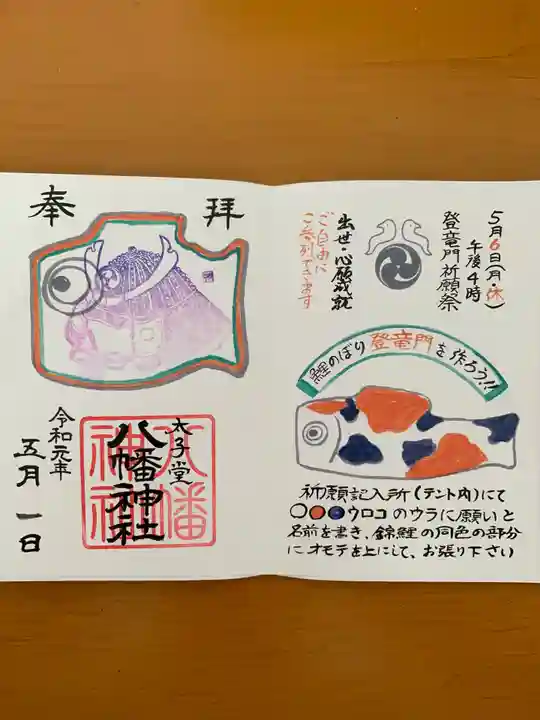 5月6日(月・休)
午後4時
登竜門祈願祭
出世・心願成就
ご自由に
ご参列できます
鯉のぼり登竜門を作ろう!!
祈願記入所(テント内)にて
○●●ウロコのウラに願いと
名前を書き、錦鯉の同色の部分
にオモテを上にして、お張り下さい
奉拝
太子堂
八幡神社
八幡神社
令和元年
五月一日